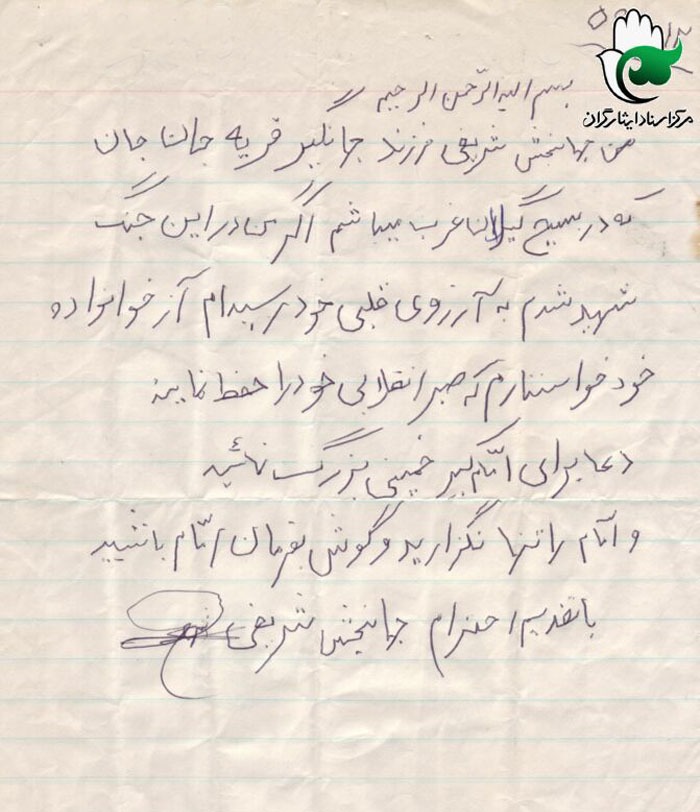 بسم الله الرحمن الرحیم
مرکز اسناد ایثارگران
من جهانبخش شریفی فرزند جهانگیر قریه جان جان
که در بسیج گیلانغرب میباشم اگر من در این جنگ
شهید شدم به آرزوی قلبی خود رسیدام از خوانواده
خود خواستارم که صبر انقلابی خود را حفظ نمایند
دعا برای امام کبیر خمینی بزرگ نمائید
و امام را تنها نگزارید و گوش بفرمان امام باشید
با تقدیم احترام جهانبخش شریفی